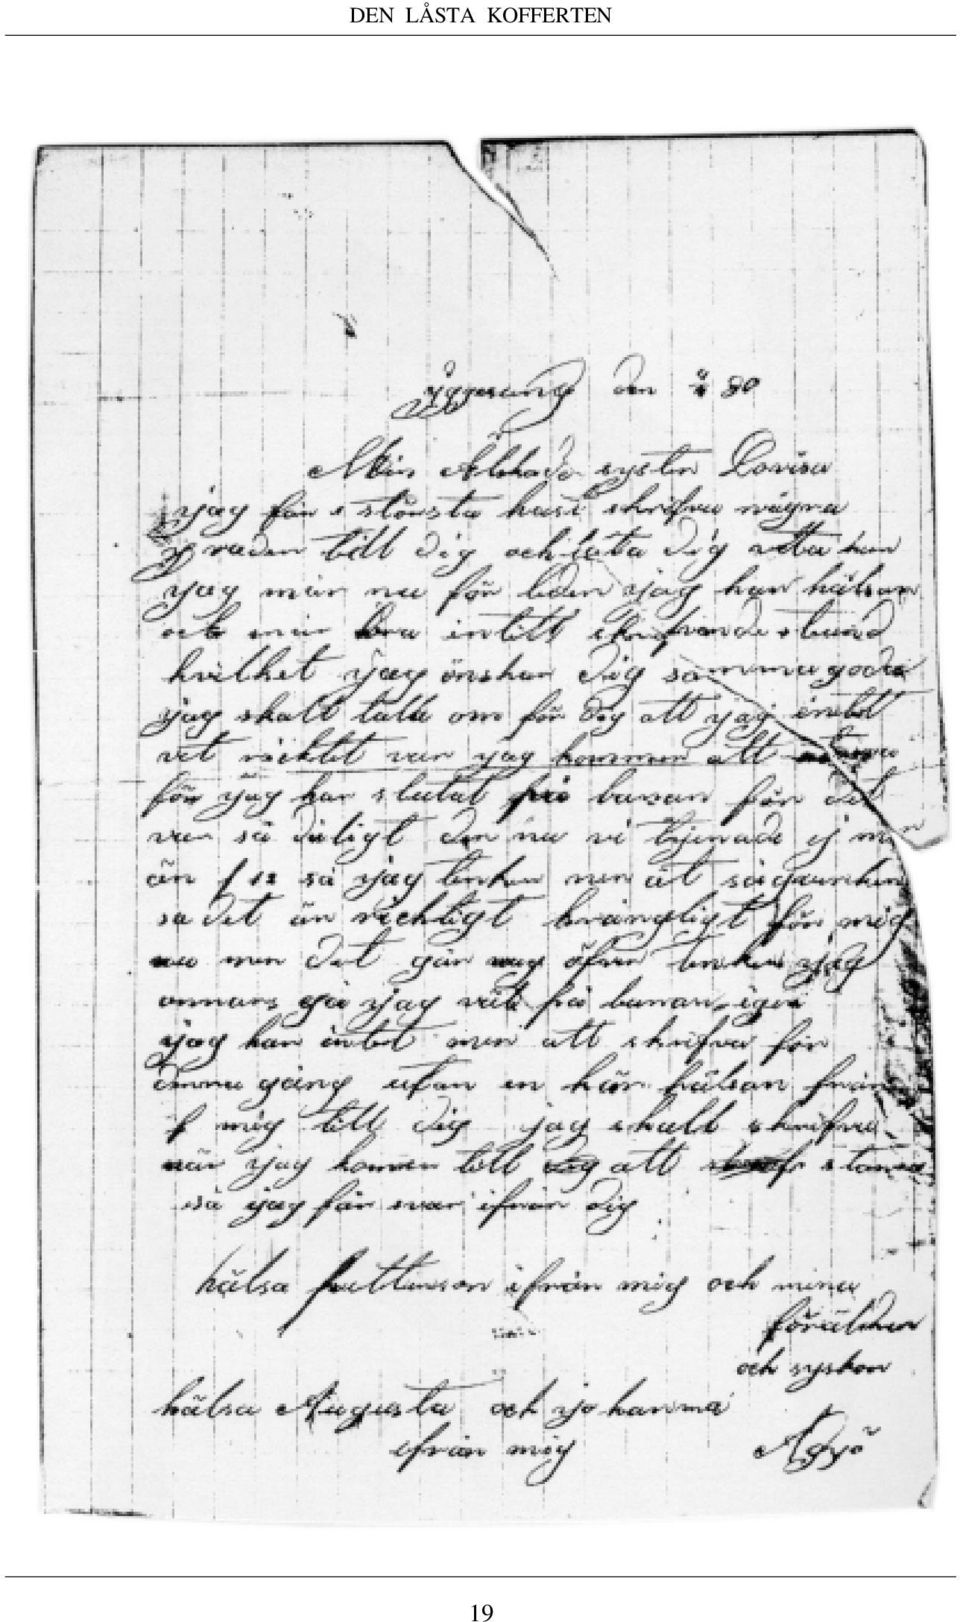 DEN LÅSTA KOFFERTEN
Iggesund den 80
Min Älskade syster Lovisa
jag får i största hast skrifva några
raden till dig och låta dig veta hur
jag mår nu för tiden jag har hälsan
och mår bra intill skrifvande stund
hvilket jag önskar dig samma goda
jag skall tala om för dig att jag intet
vet sicktet var jag kommer att
för jag har slutat på banan för det
var så dåligt der nu vi tjenade ej mer
än 12 så jag tenker mer åt sågverken
så det är rechtigt krångligt för mig
nu men det går öfver tenker jag
annars gå jag vel på banan igen
jag har intet mer att skrifva för
denna gång utan en kär hälsan från
mig till dig jag skall skrifva
när jag komer till att stanna
så jag får svar ifrån dig
hälsa ifrån mig och mina
föräldrer
och syskon
hälsa Augusta och johanna
ifrån mig
19